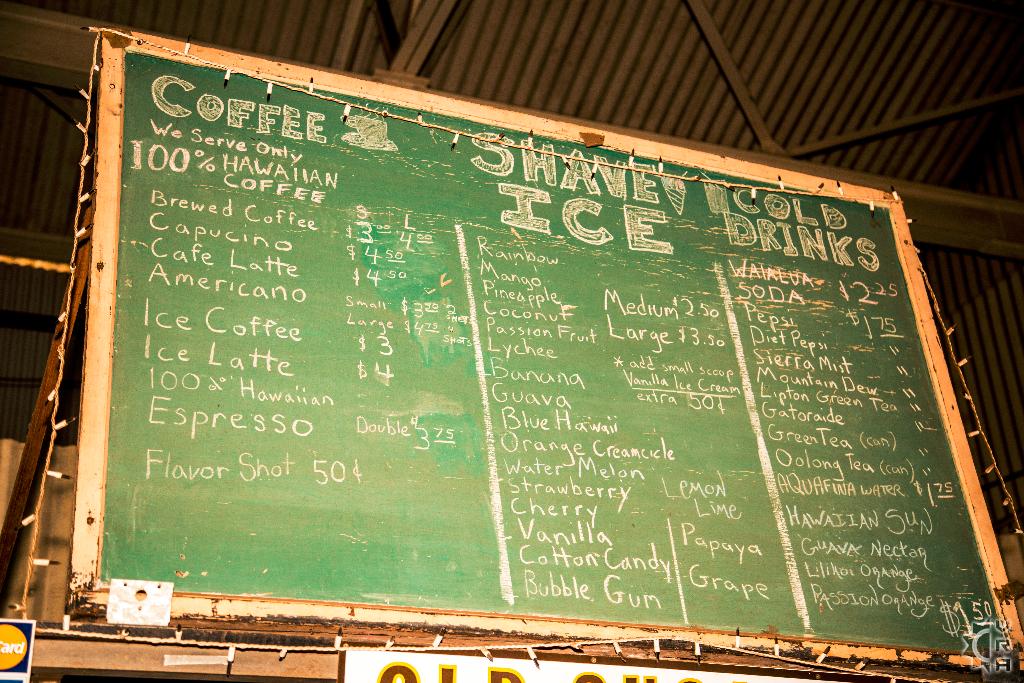 COFFEE
We Serve Only
100% HAWAIIAN
COFFEE
S L
Brewed Coffee $3 4.00
Capucino $4.50
Cafe Latte $4.50
Americano
Small $3.50 2 SHOTS
Large $4.75 4 SHOTS
Ice Coffee $3
Ice Latte $4
100% Hawaiian
Espresso Double $3.75
Flavor Shot 50¢
SHAVE
ICE
Rainbow
Mango
Pineapple
Coconut
Passion Fruit
Lychee
Banana
Guava
Blue Hawaii
Orange Creamcicle
Water Melon
Strawberry
Cherry
Vanilla
Cotton Candy
Bubble Gum
Lemon
Lime
Papaya
Grape
Medium $2.50
Large $3.50
* add small scoop
Vanilla Ice Cream
extra 50¢
COLD
DRINKS
WAIALUA
SODA $2.25
Pepsi $1.75
Diet Pepsi "
Sierra Mist "
Mountain Dew "
Lipton Green Tea "
Gatoraide "
Green Tea (can) "
Oolong Tea (can) "
AQUAFINA WATER $1.75
HAWAIIAN SUN
GUAVA Nectar
Lilikoi Orange
PASSION ORANGE
$1.50